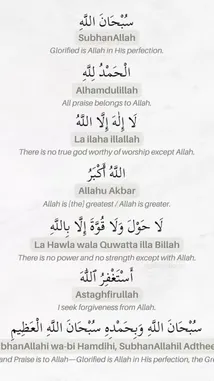 سُبْحَانَ اللَّهِ
SubhanAllah
Glorified is Allah in His perfection.
الْحَمْدُ لِلَّهِ
Alhamdulillah
All praise belongs to Allah.
لَا إِلٰهَ إِلَّا اللَّهُ
La ilaha illallah
There is no true god worthy of worship except Allah.
اللَّهُ أَكْبَرُ
Allahu Akbar
Allah is [the] greatest / Allah is greater.
لَا حَوْلَ وَلَا قُوَّةَ إِلَّا بِاللَّهِ
La Hawla wala Quwatta illa Billah
There is no power and no strength except with Allah.
أَسْتَغْفِرُ اللَّهَ
Astaghfirullah
I seek forgiveness from Allah.
سُبْحَانَ اللَّهِ وَبِحَمْدِهِ سُبْحَانَ اللَّهِ الْعَظِيمِ
bhanAllahi wa-bi Hamdihi, SubhanAllahil Adthee
and Praise is to Allah—Glorified is Allah in His perfection, the Gr